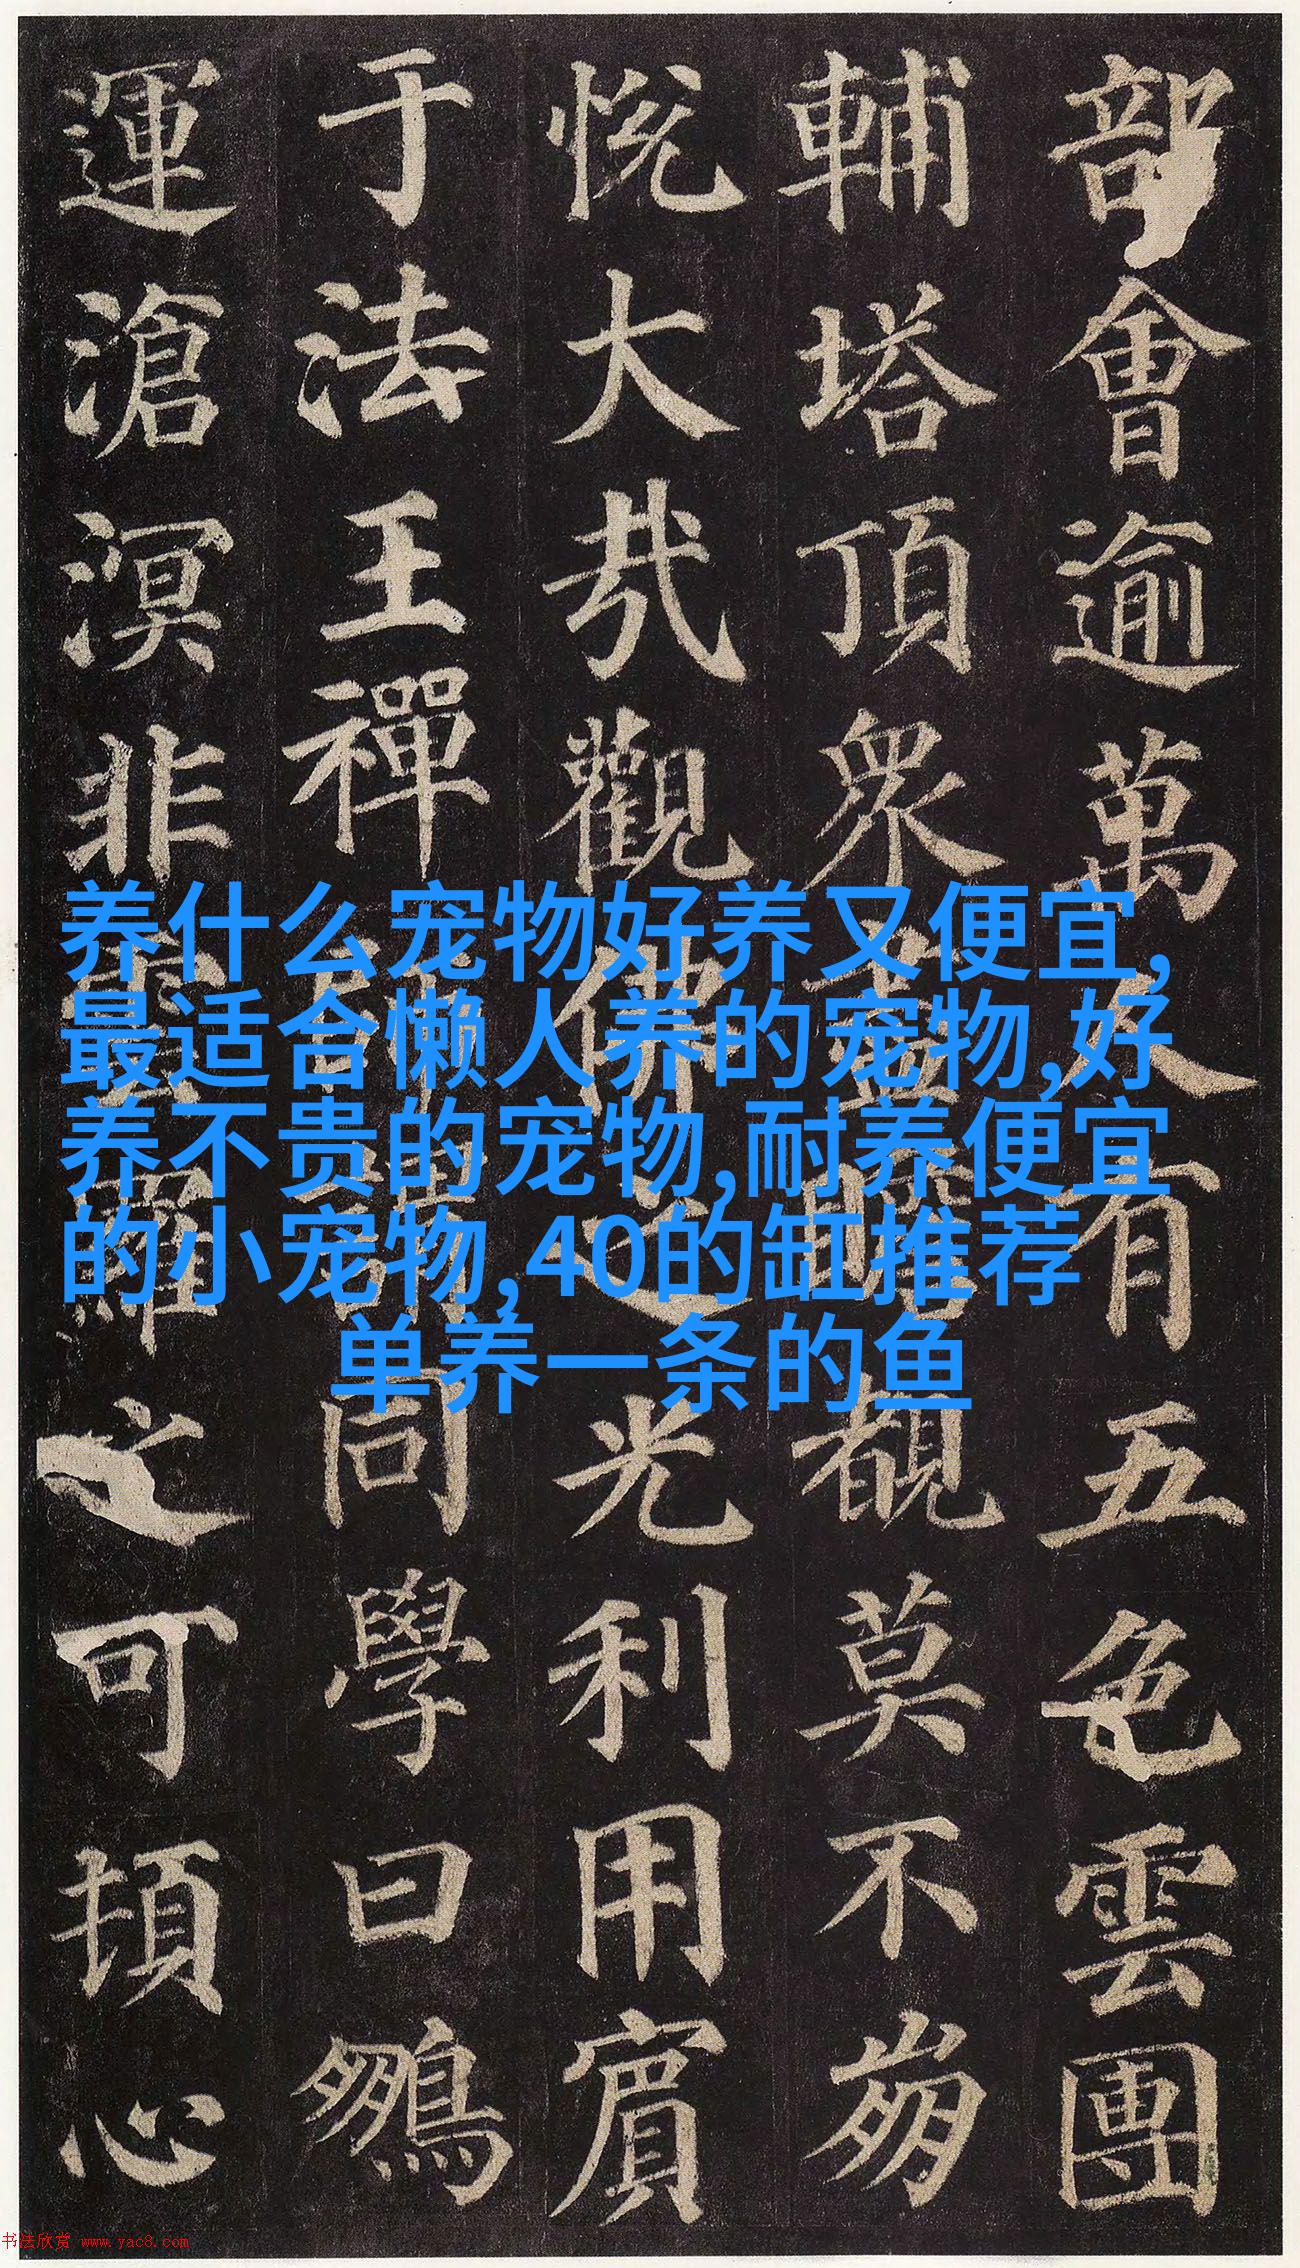 部會逾萬人有五色雲團
輔塔頂眾盡瞻覩莫不崩
悅大哉觀佛之光利用賓
于法王禪師謂同學曰鵶
運滄溟非雲羅之可頓心
养什么宠物好养又便宜,
最适合懒人养的宠物,好
养不贵的宠物,耐养便宜
的小宠物,40的缸推荐
单养一条的鱼
书法欣赏 www.yac8.com